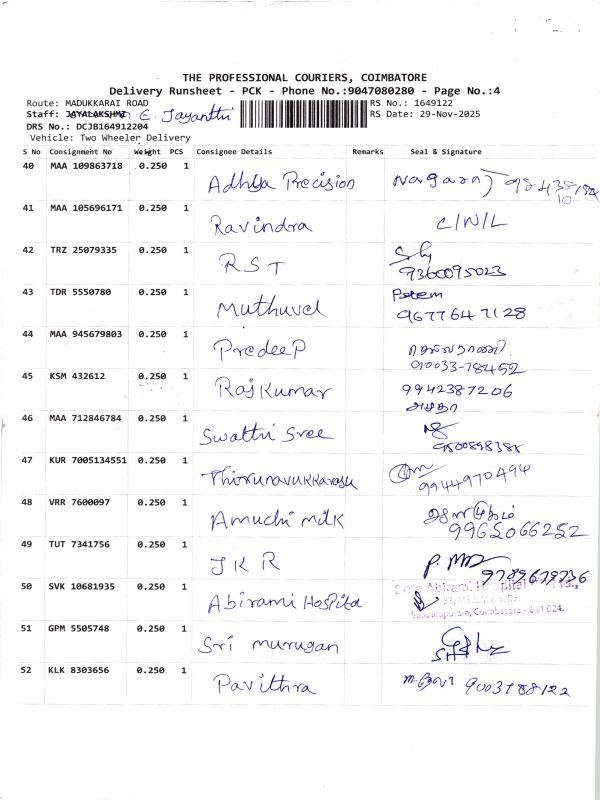 THE PROFESSIONAL COURIERS, COIMBATORE
Delivery Runsheet - PCK - Phone No.:9047080280 - Page No.:4
Route: MADUKKARAI ROAD RS No.: 1649122
Staff: JAYALAKSHMI E. Jayanthi RS Date: 29-Nov-2025
DRS No.: DCJB164912204
Vehicle: Two Wheeler Delivery
S No Consignment No Weight PCS Consignee Details Remarks Seal & Signature
40 MAA 109863718 0.250 1 Adhya Precision Nagaraj
41 MAA 105696171 0.250 1 Ravindra C/N/L
42 TRZ 25079335 0.250 1 RST 9360095023
43 TDR 5550780 0.250 1 Muthuvel 9677647128
44 MAA 945679803 0.250 1 Predeep
45 KSM 432612 0.250 1 Rajkumar 9942387206
46 MAA 712846784 0.250 1 Swathi Sree
47 KUR 7005134551 0.250 1 Thirunavukkarasu 9944970494
48 VRR 7600097 0.250 1 Amuchi milk 9965066252
49 TUT 7341756 0.250 1 JKR 9789679736
50 SVK 10681935 0.250 1 Abirami Hospital Abirami Hospital
Coimbatore - 641 024.
51 GPM 5505748 0.250 1 Sri murugan
52 KLK 8303656 0.250 1 Pavithra 9003788122